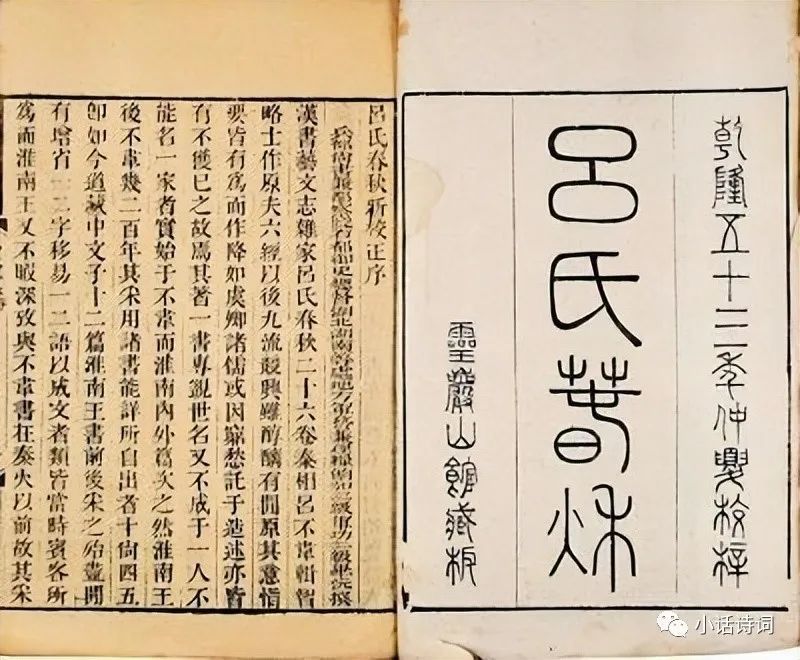 乾隆五十三秊仲夏校梓
呂氏春秋
靈巖山館藏板
呂氏春秋新校正序
兵部尚書兼都察院右都御史總督湖北湖南等處地方軍務兼理糧餉 級軍功 級畢沅撰
漢書藝文志雜家呂氏春秋二十六卷秦相呂不韋輯智
略士作原夫六經以後九流競興雖醇醨有閒原其意恉
要皆有爲而作降如虞卿諸儒或因窮愁託于造述亦皆
有不獲已之故焉其著一書專覬世名又不成于一人不
能名一家者實始于不韋而淮南內外篇次之然淮南王
後不韋幾二百年其采用諸書能詳所自出者十尚四五
卽如今道藏中文子十二篇淮南王書前後采之殆盡閒
有增省一二字移易一二語以成文者類皆當時賓客所
爲而淮南王又不暇深攷與不韋書在秦火以前故其采
小话诗词